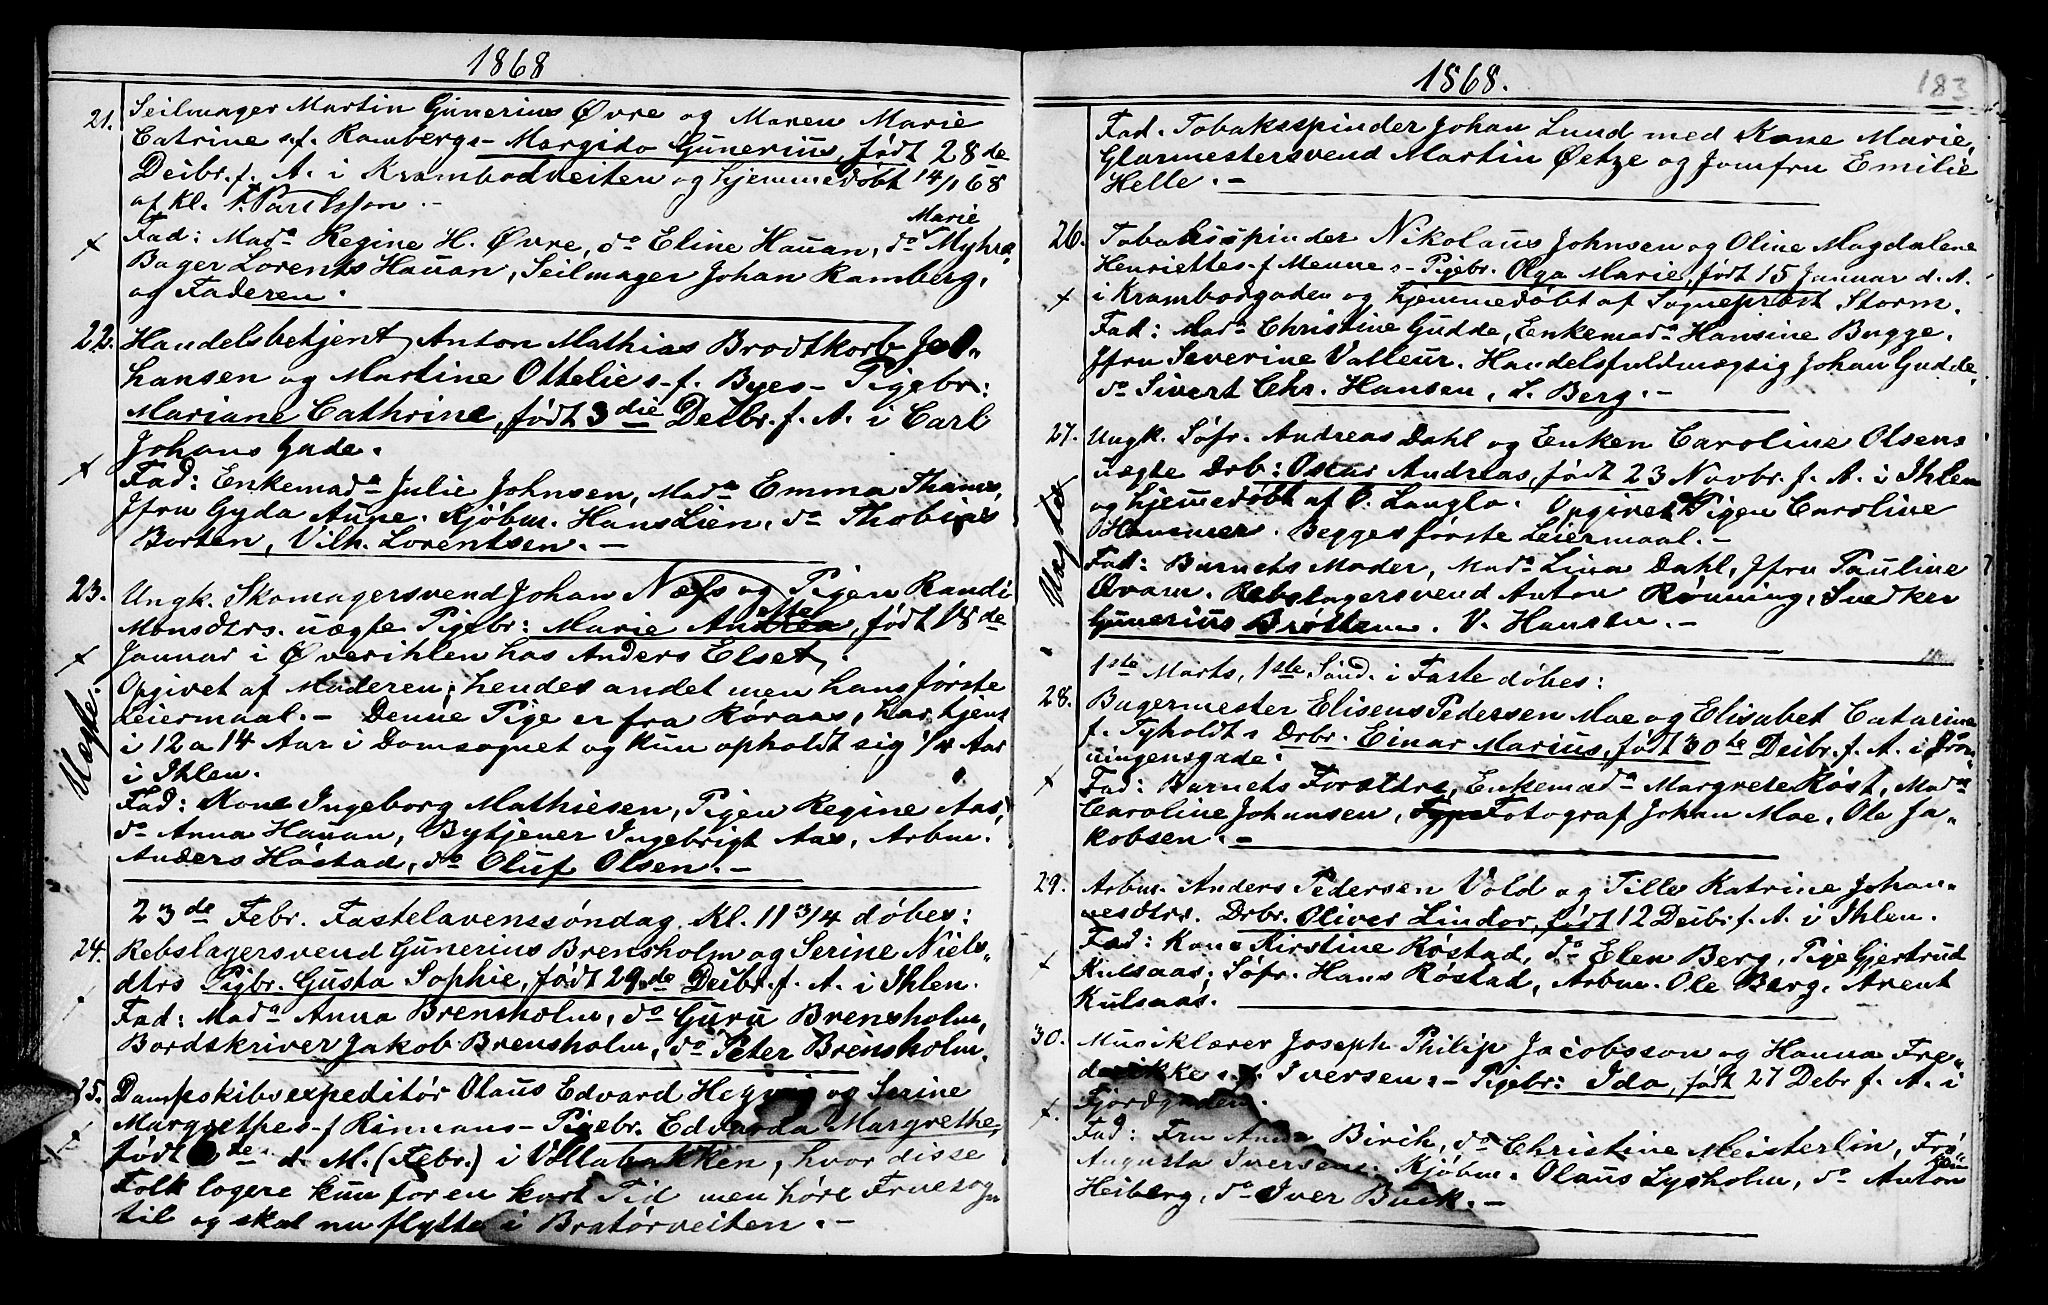 1868
21. Seilmager Martin Gunerius Øvre og Maren Marie
Catrine s.f. Rambergs - Margido Gunerius, født 28de
Deibr. f. A. i Krambodveiten og hjemmedøbt 14/1 68
af Kl. Paulsson. -
Marie
Fad: Mada Regine H. Øvre, do Eline Hauan, do Myhra,
Bager Lorents Hauan, Seilmager Johan Ramberg,
og Faderen.
22. Handelsbetjent Anton Mathias Brodtkorb Jo-
hansen og Martine Ottelie s.f. Byes - Pigebr:
Mariane Cathrine, født 3die Deibr. f. A. i Carl
Johans Gade.
Fad: Enkemada Julie Johnsen, Mada Emma Thams,
Jfru Gyda Aune. Kjøbm. Hans Lien, do Thobias
Borten, Vilh. Lorentsen. -
23. Ungk. Skomagersvend Johan Næss og Pigen Randi
Monsdtrs. uægte Pigebr: Marie Andrea, født 18de
Januar i Øverihlen hos Anders Elset.
Opgivet af Moderen; hendes andet men hans første
Leiermaal. - Denne Pige er fra Røraas, har tjent
i 12 a 14 Aar i Domsognet og kun opholdt sig 1/4 Aar
i Ihlen.
Uægte.
Fad: Kone Ingeborg Mathiesen, Pigen Regine Aas,
do Anna Hauan, Bytjener Ingebrigt Aas, Arbm.
Anders Høstad, do Oluf Olsen. -
23de Febr. Fastelavenssøndag. Kl. 11 3/4 døbes:
24. Rebslagersvend Gunerius Brensholm og Serine Niels-
dtrs Pigbr. Gusta Sophie, født 29de Deibr. f. A. i Ihlen.
Fad: Mada Anna Brensholm, do Guru Brensholm,
Bordskriver Jakob Brensholm, do Peter Brensholm.
25. Dampskibsexpeditør Olaus Edvard Hegvig og Serine
Margrethe s-f Rinnans - Pigebr. Edvarda Margrethe,
født de d. M. (Febr.) i Vollabakken, hvor disse
Folk logere kun for en kort Tid men høre Fruesogn
til og skal nu flytte i Bratørveiten. -
1868.
183
Fad. Tobaksspinder Johan Lund med Kone Marie,
Glarmestersvend Martin Øetze og Jomfru Emilie
Helle. -
26. Tobaksspinder Nikolaus Johnsen og Oline Magdalene
Henriette s-f Menne s- Pigebr. Olga Marie, født 15 Januar d. A.
i Krambodgaden og hjemmedøbt af Sogneprost Storm.
Fad: Mada Christine Gudde, Enkemada Hansine Bugge.
Jfru Severine Valleur. Handelsfuldmægtig Johan Gudde,
do Sivert Chr. Hansen, L. Berg. -
27. Ungk. Søfr. Andreas Dahl og Enken Caroline Olsens
uægte Drb: Oscar Andreas, født 23 Novbr. f. A. i Ihlen
og hjemmedøbt af O. Langlo. Opgivet Pigen Caroline
Hammer. Begges første Leiermaal. -
Uægte
Fad: Barnets Moder, Mada Lina Dahl, Jfru Pauline
Qvam. Rebslagersvend Anton Rønning, Snedker
Gunerius Brøttem. V. Hansen. -
1ste Marts, 1ste Sønd. i Faste døbes:
28. Bagermester Eliseus Pedersen Moe og Elisabet Catarina
f. Tyholdt s Drbr. Einar Marius, født 30te Deibr. f. A. i Dron-
ningensgade.
Fad: Barnets Forældre, Enkemada Margrete Røst, Mada
Caroline Johansen, Fotograf Johan Moe, Ole Ja-
kobsen. -
29. Arbm. Anders Pedersen Vold og Tille Katrine Johan-
nesdtrs. Drbr. Oliver Lindor, født 12 Deibr. f. A. i Ihlen.
Fad: Kone Kirstine Røstad, do Elen Berg, Pige Gjertrud
Kulsaas; Søfr. Hans Røstad, Arbm. Ole Berg. Arent
Kulsaas.
30. Musiklærer Joseph Philip Jacobsson og Hanna Fre-
derikke s.f. Iversen s- Pigebr: Ida, født 27 Debr f. A. i
Fjordgaden.
Fad: Fru Anna Birch, do Christine Meisterlin, Frø-
ken
Augusta Iversen. Kjøbm. Olaus Lysholm, do Anton
Heiberg, do Iver Buck. -